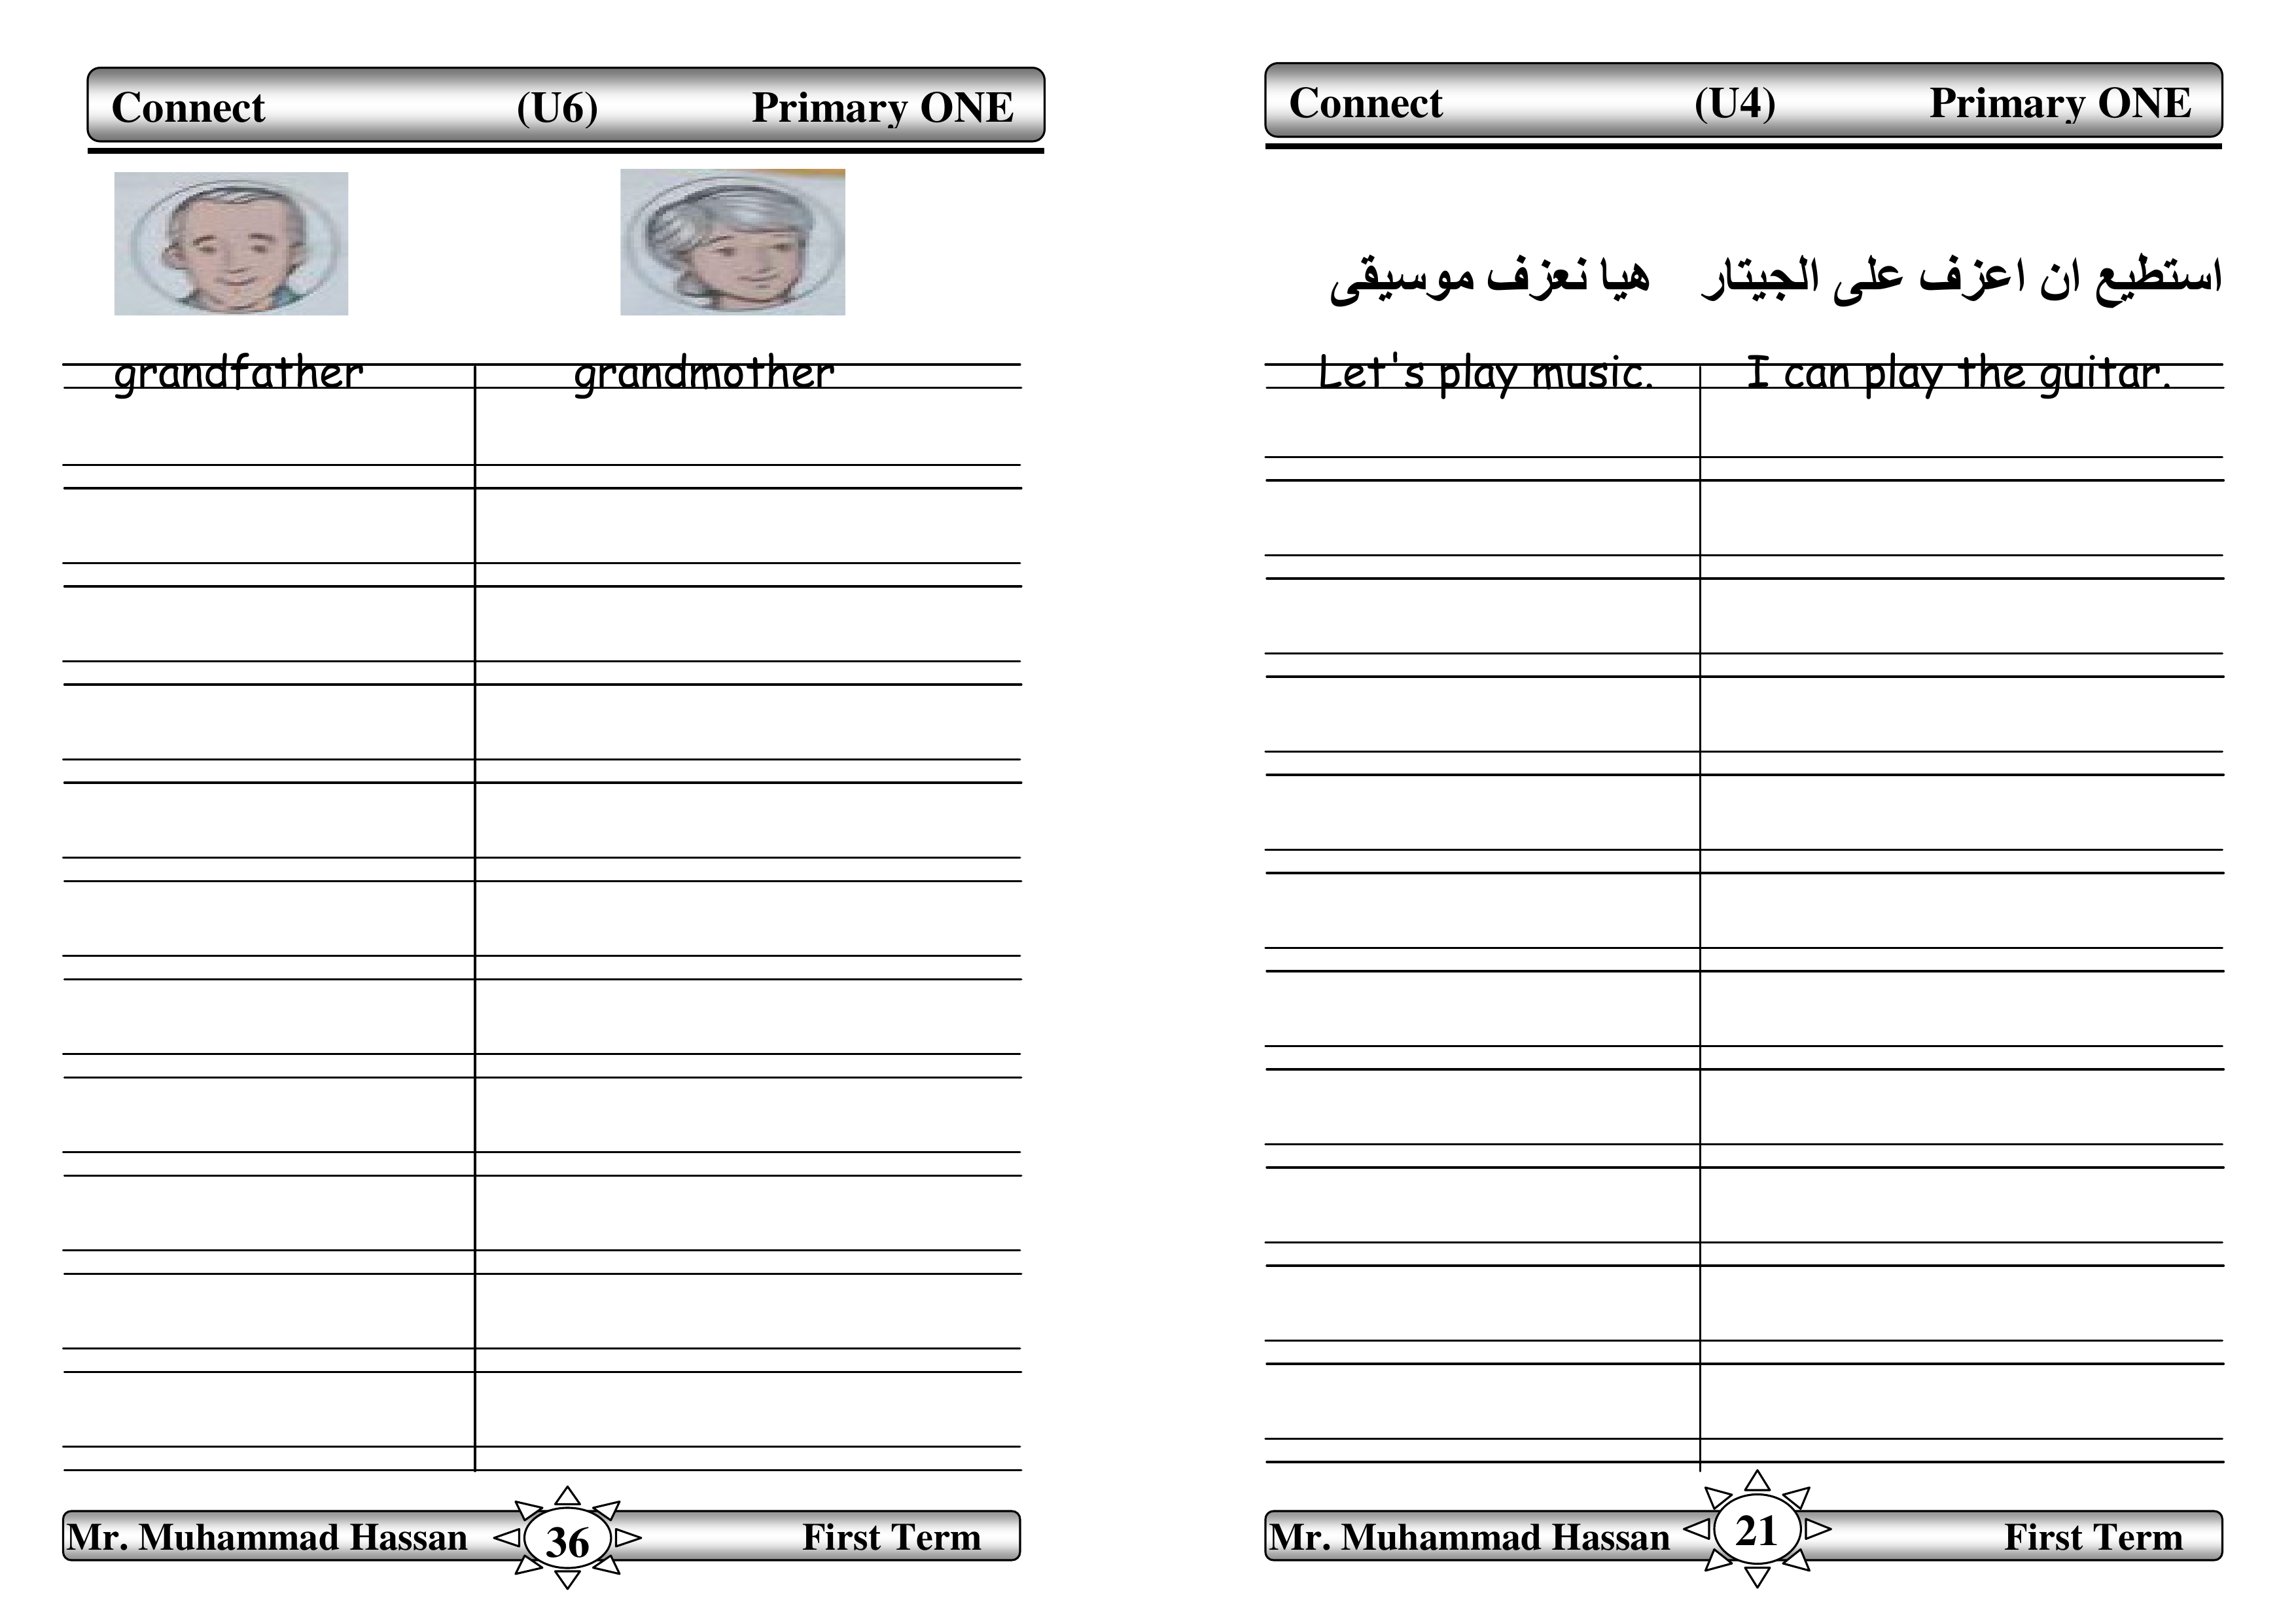 Connect (U6) Primary ONE
grandfather grandmother
Mr. Muhammad Hassan 36 First Term
Connect (U4) Primary ONE
استطيع ان اعزف على الجيتار هيا نعزف موسيقى
Let's play music. I can play the guitar.
Mr. Muhammad Hassan 21 First Term